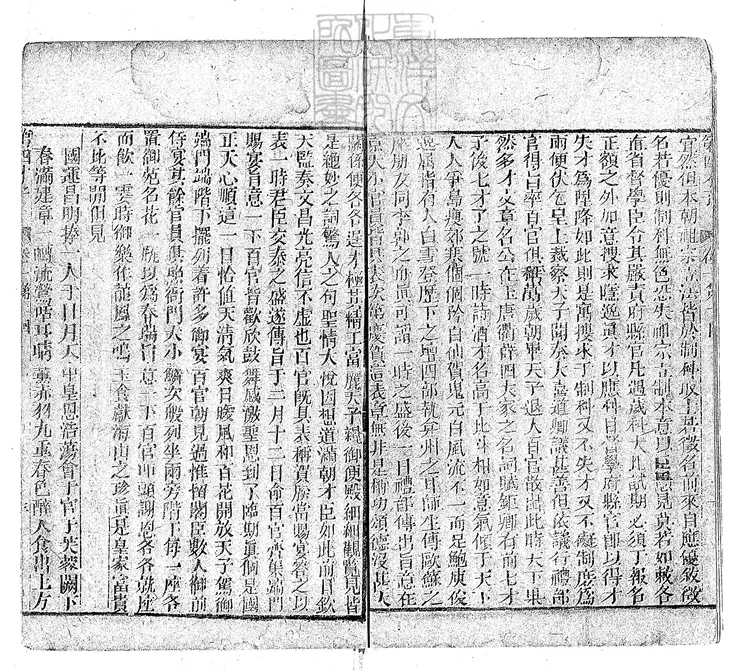 宜然但本朝祖宗立法皆於制科取士若徵召前來自應優敘徵
名若優則制科無色恐失祖宗立制本意以臣愚見莫若勅各
直省督學臣令其嚴責府縣官凡遇歲科大比試期必須于報名
正額之外加意搜求隱逸眞才以應科目督學府縣官卽以得才
失才為陞降如此則是寓搜求于制科又不失才又不礙制度為
兩便伏乞皇上裁察天子聞奏大喜道卿議甚善俱依議行禮部
官得旨率百官俱稱萬歲朝畢天子退入百官散出此時天下果
然多才文章名公在王唐衢薛四大家之名詞賦鉅卿有前七才
子後七才子之號一時詩酒才名高于北斗相如意氣傾于天下
人人爭島瘦郊寒個個矜白仙賀鬼元白風流不一而足鮑庾俊
逸屈指有人白雪登歷下之壇四部執弇州之耳師生傳歐蘇之
座朋友同李郭之舟眞可謂一時之盛後一日禮部傳出旨意在
京大小官員皆具表次第慶賀這表章無非是稱功頌德沒甚大
關係便各各逞才極其精工富麗天子親御便殿細細觀覽見皆
是絕妙之詞驚人之句聖情大悅因想道滿朝才臣如此前日欽
天監奏文昌光亮信不虛也百官旣具表稱賀朕當賜宴答之以
表一時君臣交泰之盛遂傳旨于二月十二日命百官齊集端門
賜宴旨意一下百官皆歡欣鼓舞感激聖恩到了臨期眞個是國
正天心順這一日恰値天淸氣爽日暖風和百花開放天子駕御
端門端階下擺列着許多御宴百官朝見過惟留閣臣數人御前
侍宴其餘官員俱照衙門大小鱗次般列坐兩旁階下每一座各
置御苑名花一瓶以為春瑞旨意一下百官叩頭謝恩各各就座
而飲一霎時御樂作龍鳳之鳴玉食獻海山之珍眞是皇家富貴
不比等閒但見
國運昌明捧一人于日月天中皇恩浩蕩會千官于芙蓉闕下
春滿建章百囀流鶯啼耳晴熏赤羽九重春色醉人食出上方